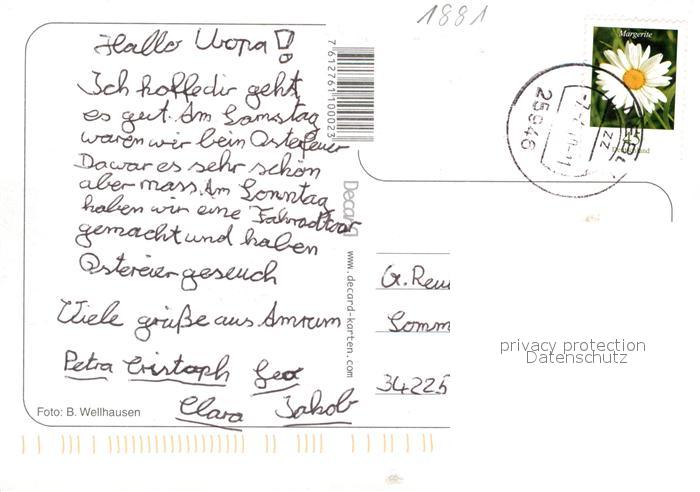 1881
Hallo Uropa!
Ich hoffe dir geht
es gut. Am Samstag
waren wir beim Osterfeuer
Da war es sehr schön
aber nass. Am Sonntag
haben wir eine Fahrradtour
gemacht und haben
Ostereier geseuch
Viele grüße aus Amrum
Petra Cristoph Gea
Clara Jakob
Foto: B. Wellhausen
7 612761 100023
Decard
www.decard-karten.com
Margerite
45
Deutschland
25946
G. Reu
Somm
34225
privacy protection
Datenschutz